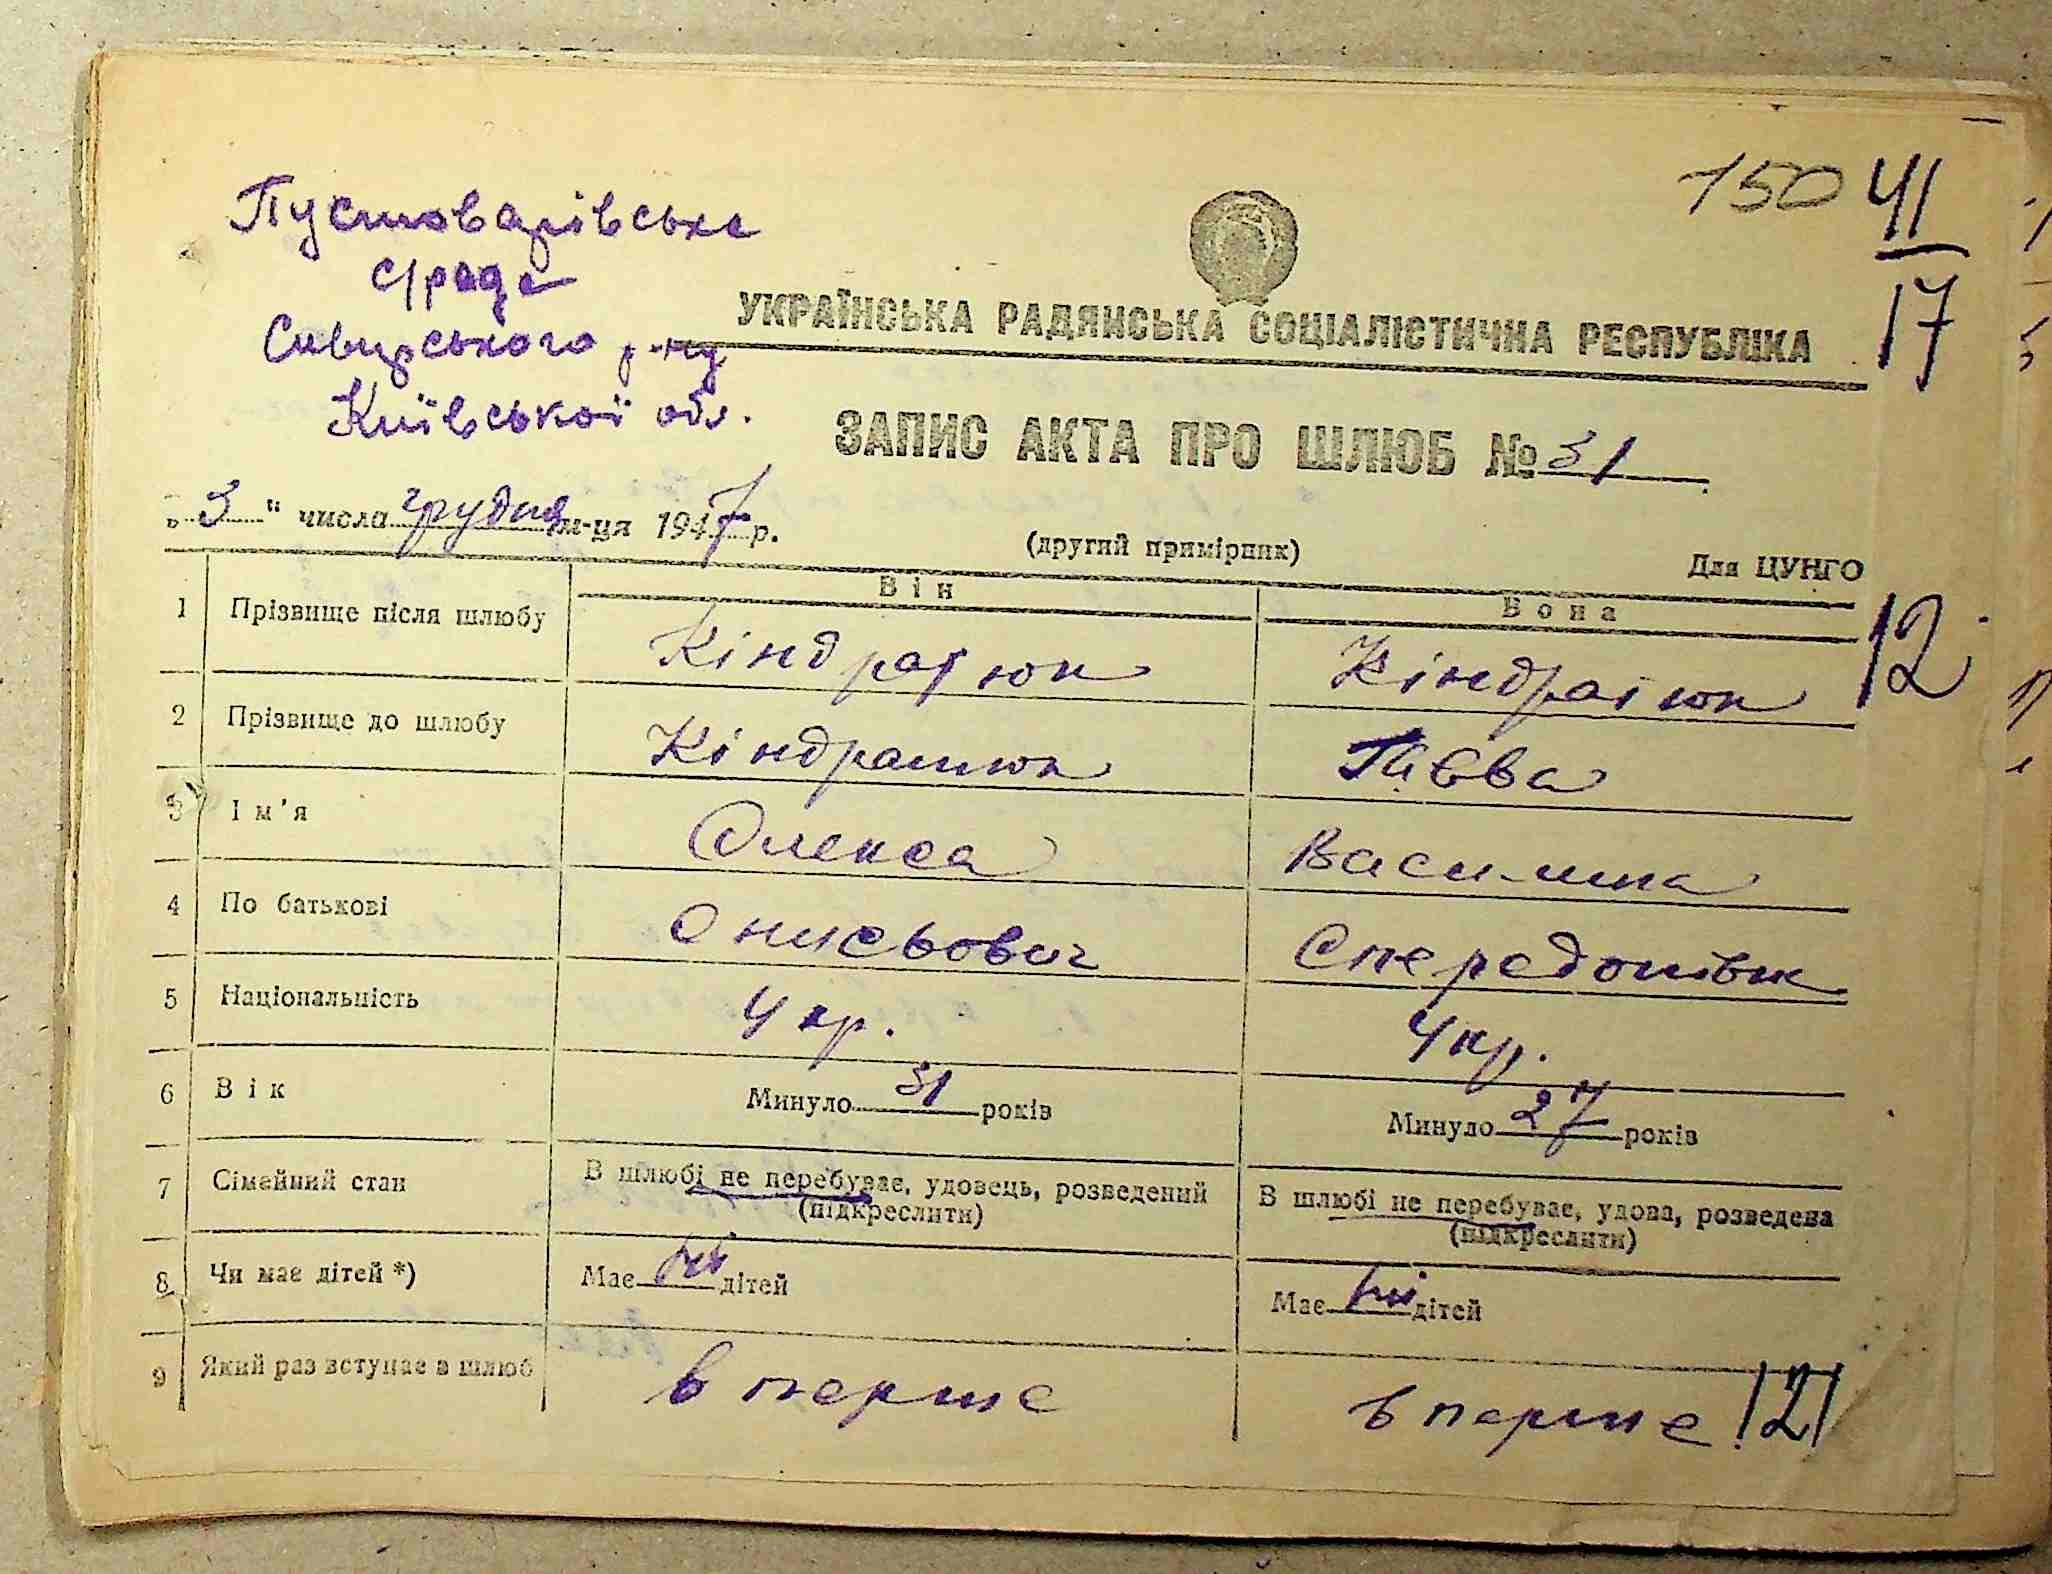 150 41
17
Пустоварівська
с/рада
Сквирського р-ну
Київської обл.
УКРАЇНСЬКА РАДЯНСЬКА СОЦІАЛІСТИЧНА РЕСПУБЛІКА
ЗАПИС АКТА ПРО ШЛЮБ № 31
„3“ числа грудня м-ця 1947 р.
(другий примірник)
Для ЦУНГО
Він Вона
1 Прізвище після шлюбу Кіндратюк Кіндратюк 12
2 Прізвище до шлюбу Кіндратюк
3 Ім'я Олекса Василина
4 По батькові Онисьович Спередонівна
5 Національність Укр. Укр.
6 Вік Минуло 31 років Минуло 27 років
7 Сімейний стан В шлюбі не перебуває, удовець, розведений (підкреслити) В шлюбі не перебуває, удова, розведена (підкреслити)
8 Чи має дітей *) Має ні дітей Має ні дітей
9 Який раз вступає в шлюб в перше в перше 121